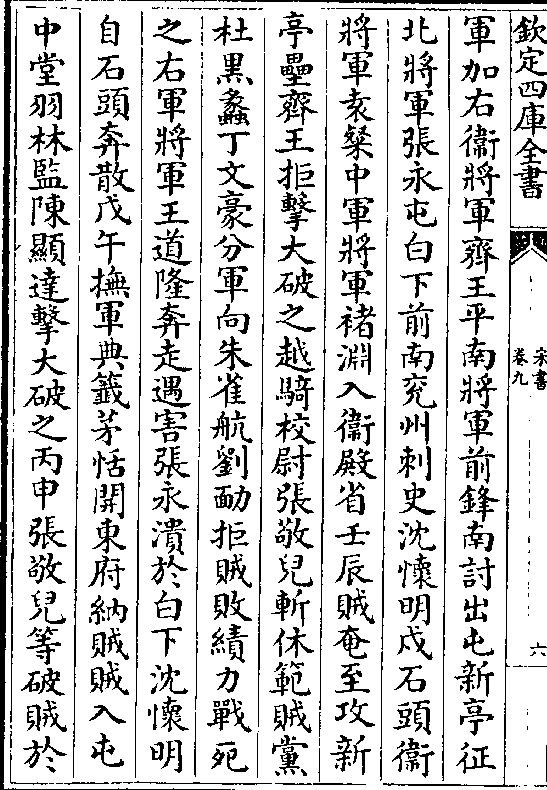 欽定四庫全書
宋書
卷九
六
軍加右衞將軍齊王平南將軍前鋒南討出屯新亭征
北將軍張永屯白下前南兖州刺史沈懷明戍石頭衞
將軍袁粲中軍將軍褚淵入衞殿省壬辰賊奄至攻新
亭壘齊王拒擊大破之越騎校尉張敬兒斬休範賊黨
杜黒蠡丁文豪分軍向朱雀航劉勔拒賊敗績力戰死
之右軍將軍王道隆奔走遇害張永潰於白下沈懷明
自石頭奔散戊午撫軍典籤茅恬開東府納賊賊入屯
中堂羽林監陳顯達擊大破之丙申張敬兒等破賊於